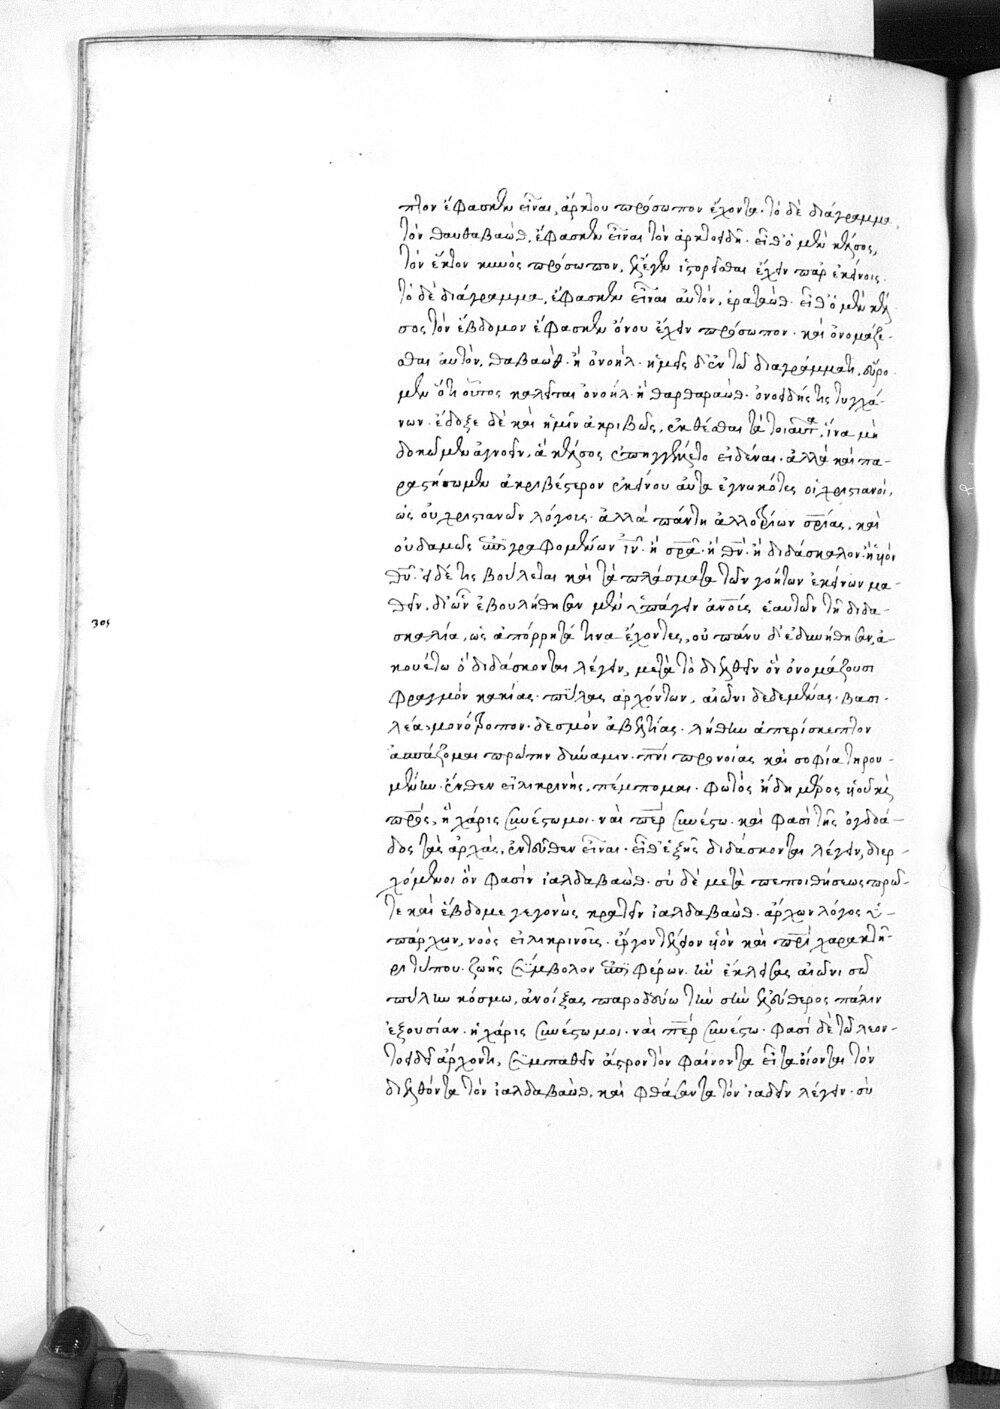 πτον ἔφασκεν εἶναι, ἄρκτου πρόσωπον ἔχοντα· τὸ δὲ διάγραμμα,
τὸν θαυθαβαὼθ, ἔφασκεν εἶναι τὸν ἀρκτοειδῆ· εἶθ' ὁ μὲν κέλσος,
τὸν ἕκτον κυνὸς πρόσωπον, ἔλεγεν ἱστορεῖσθαι ἔχειν παρ' ἐκείνοις·
τὸ δὲ διάγραμμα, ἔφασκεν εἶναι αὐτὸν, ἐραταὼθ· εἶθ' ὁ μὲν κέλ
σος τὸν ἕβδομον ἔφασκεν ὄνου ἔχειν πρόσωπον· καὶ ὀνομάζε-
σθαι αὐτὸν, θαβαὼθ· ἢ ὀνοὴλ· ἡμεῖς δ' ἐν τῶ διαγράμματι, εὕρο-
μεν ὅτι οὗτος καλεῖται ὀνοὴλ· ἢ θαρθαραὼθ· ὀνοειδής τις τυγχά-
νων· ἔδοξε δὲ καὶ ἡμῖν ἀκριβῶς, ἐκθέσθαι τὰ τοιαῦτα, ἵνα μὴ
δοκῶμεν ἀγνοεῖν, ἃ κέλσος ἐπηγγέλλετο εἰδέναι· ἀλλὰ καὶ πα-
ραστήσωμεν ἀκριβέστερον ἐκείνου αὐτὰ ἐγνωκότες οἱ χριστιανοὶ,
ὡς οὐ χριστιανῶν λόγοις· ἀλλὰ πάντη ἀλλοτρίων σρίας, καὶ
οὐδαμῶς ἐπιγραφομένων ἰν· ἢ σρα· ἢ θν· ἢ διδάσκαλον· ἢ υἱὸν
θυ· εἰ δέ τις βούλεται καὶ τὰ πλάσματα τῶν γοήτων ἐκείνων μα-
θεῖν, δι' ὧν ἐβουλήθησαν μὲν ὑπάγειν ανοις ἑαυτῶν τῆ διδα-
σκαλία, ὡς ἀπόρρητά τινα ἔχοντες, οὐ πάνυ δ' ἐδυνήθησαν, ἀ-
κουέτω ὃ διδάσκονται λέγειν, μετὰ τὸ διελθεῖν ὃν ὀνομάζουσι
φραγμὸν κακίας· πύλας ἀρχόντων, αἰῶνι δεδεμένας· βασι-
λέα μονότροπον· δεσμὸν ἀβλεψίας· λήθην ἀπερίσκεπτον
ἀσπάζομαι πρώτην δύναμιν· πνι προνοίας καὶ σοφία τηρου-
μένην· ἔνθεν εἰλικρινὴς, πέμπομαι· φωτὸς ἤδη μέρος υἱοῦ καὶ
πρς, ἡ χάρις συνέστω μοι· ναὶ περ συνέστω· καὶ φασὶ τῆς ὀγδοά-
δος τὰς ἀρχὰς, ἐντεῦθεν εἶναι· εἶθ' ἑξῆς διδάσκονται λέγειν, διερ-
χόμενοι ὃν φασὶν ἰαλδαβαώθ· σὺ δὲ μετὰ πεποιθήσεως πρῶ-
τε καὶ ἕβδομε γεγονὼς κρατεῖν ἰαλδαβαὼθ· ἄρχων λόγος ὑ-
πάρχων, νοὸς εἰλικρινοῖς· ἔργον τέλειον υἱὸν καὶ πρι χαρακτῆ-
ρι τύπου· ζωῆς σύμβολον ἐπιφέρων· ἣν ἔκλεισας αἰῶνι σῶ
πύλην κόσμω, ἀνοίξας παροδεύω τὴν σὴν ἐλεύθερος πάλιν
ἐξουσίαν· ἡ χάρις συνέστω μοι· ναὶ περ συνέστω· φασὶ δὲ τῶ λεον-
τοειδεῖ ἄρχοντι, συμπαθεῖν ἄστρον τὸν φαίνοντα εἶτα οἴονται τὸν
διελθόντα τὸν ἰαλδαβαὼθ, καὶ φθάσαντα τὸν ἰαδεῖν λέγειν· σὺ
305